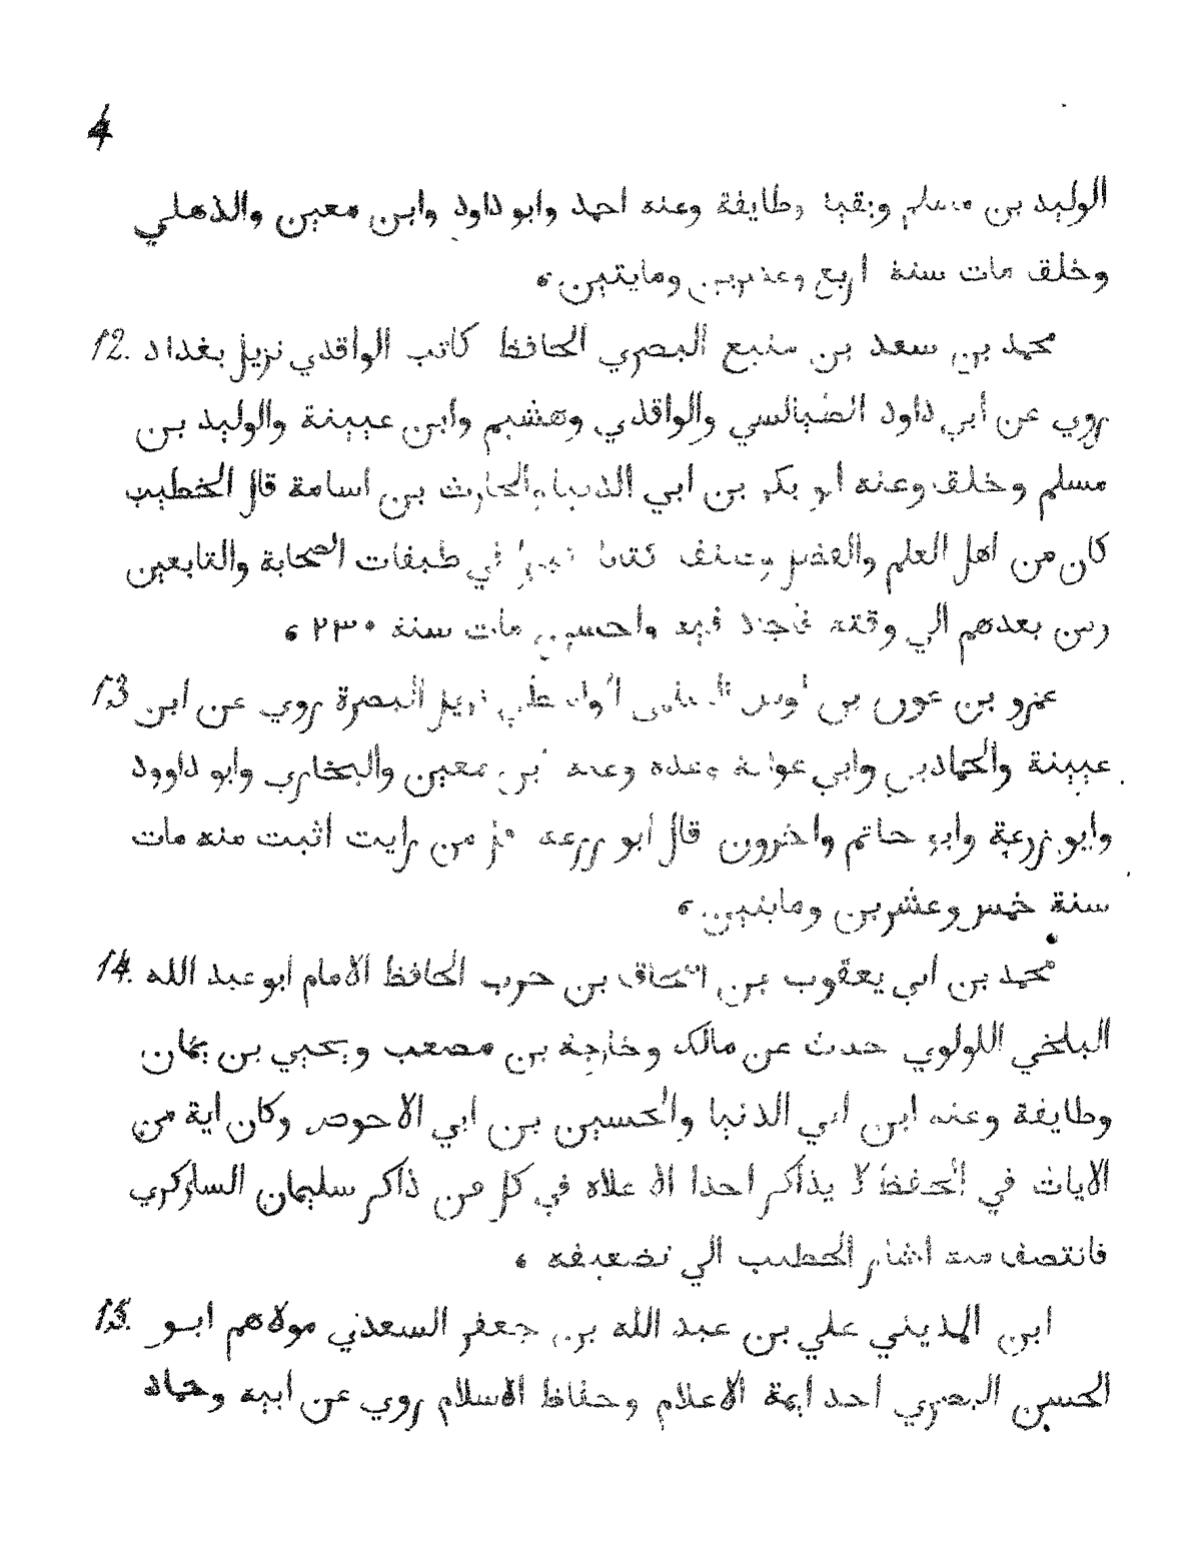 4
الوليد بن مسلم وبقية وطايفة وعنه احمد وابو داود وابن معين والذهلي
وخلق مات سنة اربع وعشرين ومايتين ،
12. محمد بن سعد بن منيع البصري الحافظ كاتب الواقدي نزيل بغداد
روي عن ابي داود الطيالسي والواقدي وهشيم وابن عيينة والوليد بن
مسلم وخلق وعنه ابو بكر بن ابي الدنيا والحارث بن اسامة قال الخطيب
كان من اهل العلم والفضل وصنف كتابا كبيرا في طبقات الصحابة والتابعين
ومن بعدهم الي وقته فاجاد فيه واحسن مات سنة ٢٣٠ ،
13 عمرو بن عون بن اوس السلمي الواسطي نزيل البصرة روي عن ابن
عيينة والحمادين وابي عوانة وعدة وعنه ابن معين والبخاري وابو داوود
وابو زرعة وابو حاتم واخرون قال ابو زرعة قل من رايت اثبت منه مات
سنة خمس وعشرين ومايتين ،
14. محمد بن ابي يعقوب بن اسحاق بن حرب الحافظ الامام ابو عبد الله
البلخي اللولوي حدث عن مالك وخارجة بن مصعب ويحيي بن يمان
وطايفة وعنه ابن ابي الدنيا والحسين بن ابي الاحوص وكان اية من
الايات في الحفظ لا يذاكر احدا الا علاه في كل من ذاكر سليمان الساركري
فانتصف منه اشار الخطيب الي تضعيفه ،
15. ابن المديني علي بن عبد الله بن جعفر السعدني مولاهم ابو
الحسن البصري احد ايمة الاعلام وحفاظ الاسلام روي عن ابيه وحماد